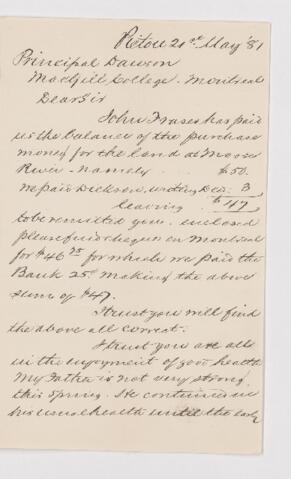 Pictou 21st May '81
Principal Dawson
MacGill College. Montreal
Dear Sir
John Fraser has paid
us the balance of the purchase
money for the land at Moose
River - Namely $50.
We paid Dickson, writing Deed: 3
leaving $47
to be remitted you. enclosed
please find cheque on Montreal
for $46 75 for which we paid the
Bank 25c making the above
sum of $47.
I trust you will find
the above all correct.
I trust you are all
in the enjoyment of good health
My Father is not very strong
this Spring. He continued in
his usual health until the early